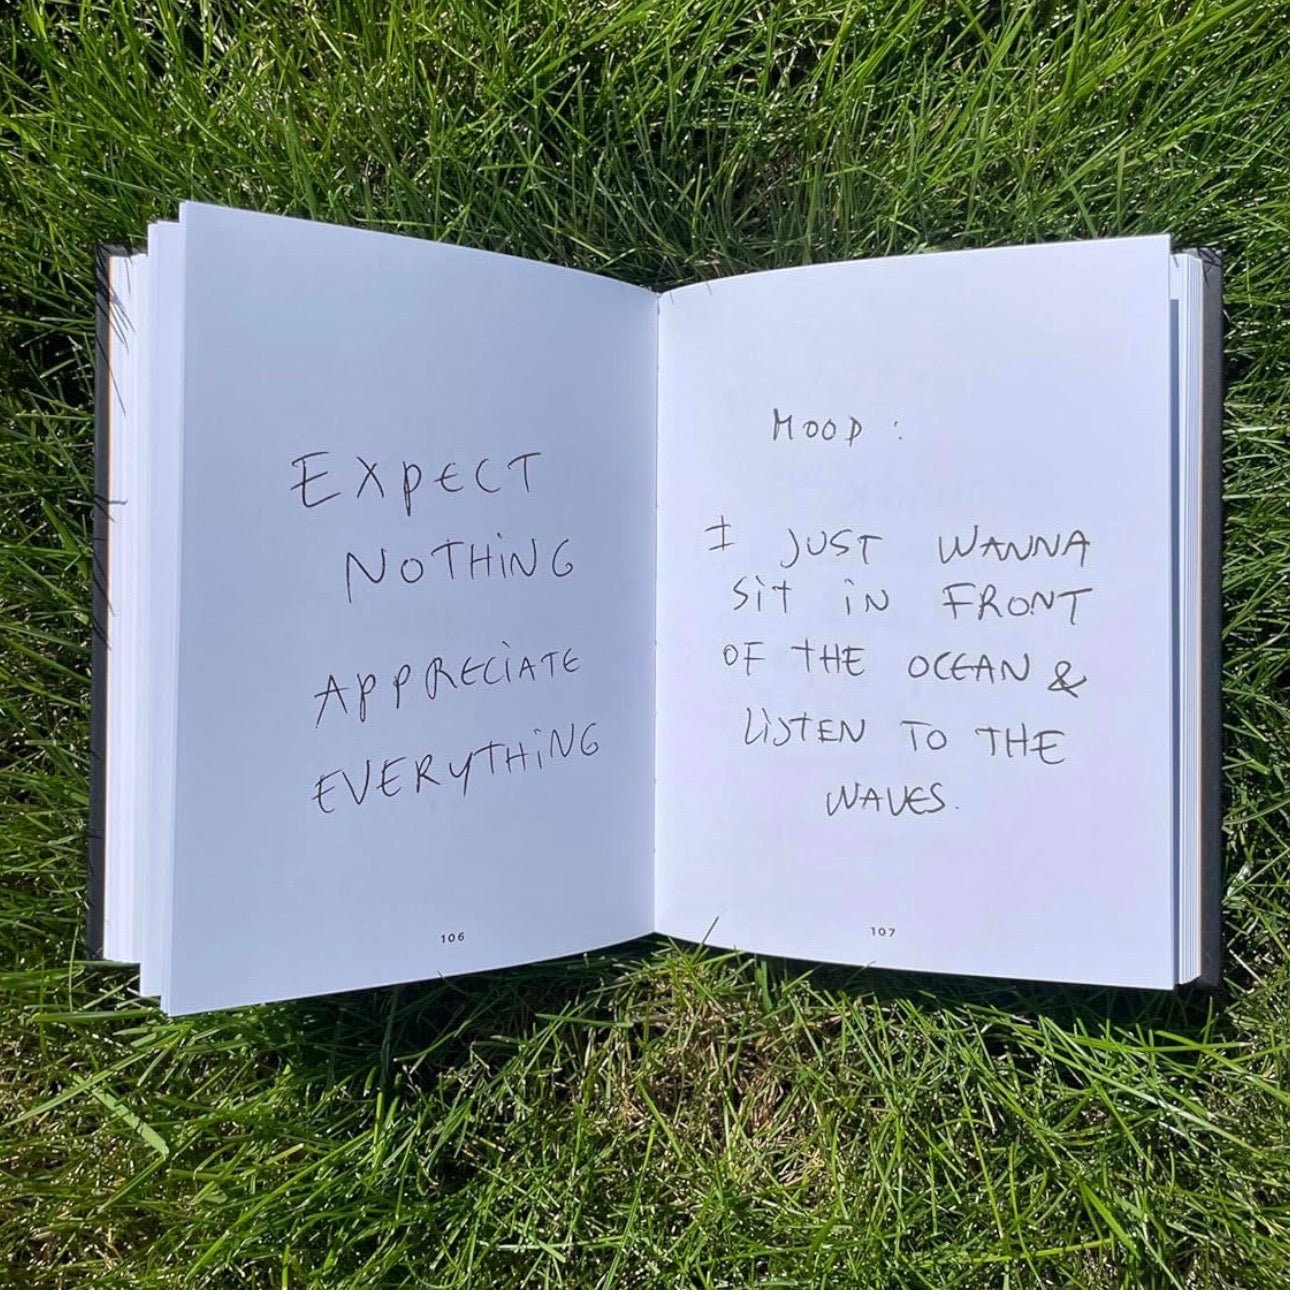 EXPECT
NOTHiNG
APPRECiATE
EVERYTHiNG
106
MOOD :
I JUST WANNA
Sit iN FRONT
OF THE OCEAN &
LiSTEN TO THE
WAVES.
107